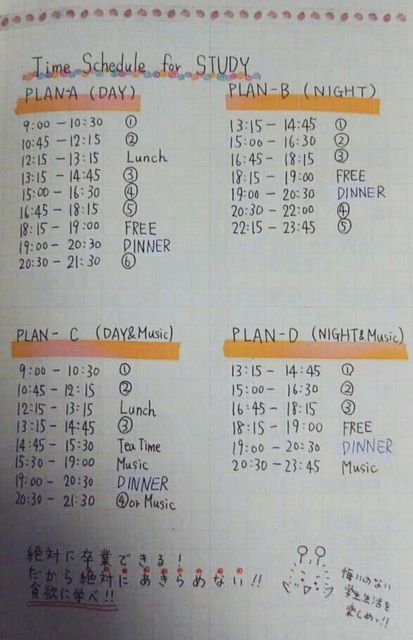 Time Schedule for STUDY
PLAN-A (DAY)
9:00 - 10:30 ①
10:45 - 12:15 ②
12:15 - 13:15 Lunch
13:15 - 14:45 ③
15:00 - 16:30 ④
16:45 - 18:15 ⑤
18:15 - 19:00 FREE
19:00 - 20:30 DINNER
20:30 - 21:30 ⑥
PLAN-B (NIGHT)
13:15 - 14:45 ①
15:00 - 16:30 ②
16:45 - 18:15 ③
18:15 - 19:00 FREE
19:00 - 20:30 DINNER
20:30 - 22:00 ④
22:15 - 23:45 ⑤
PLAN-C (DAY&Music)
9:00 - 10:30 ①
10:45 - 12:15 ②
12:15 - 13:15 Lunch
13:15 - 14:45 ③
14:45 - 15:30 Tea Time
15:30 - 19:00 Music
19:00 - 20:30 DINNER
20:30 - 21:30 ④ or Music
PLAN-D (NIGHT&Music)
13:15 - 14:45 ①
15:00 - 16:30 ②
16:45 - 18:15 ③
18:15 - 19:00 FREE
19:00 - 20:30 DINNER
20:30 - 23:45 Music
絶対に卒業できる!
だから絶対にあきらめない!!
貪欲に学べ!!
悔いのない
学生生活を
楽しめっ!!